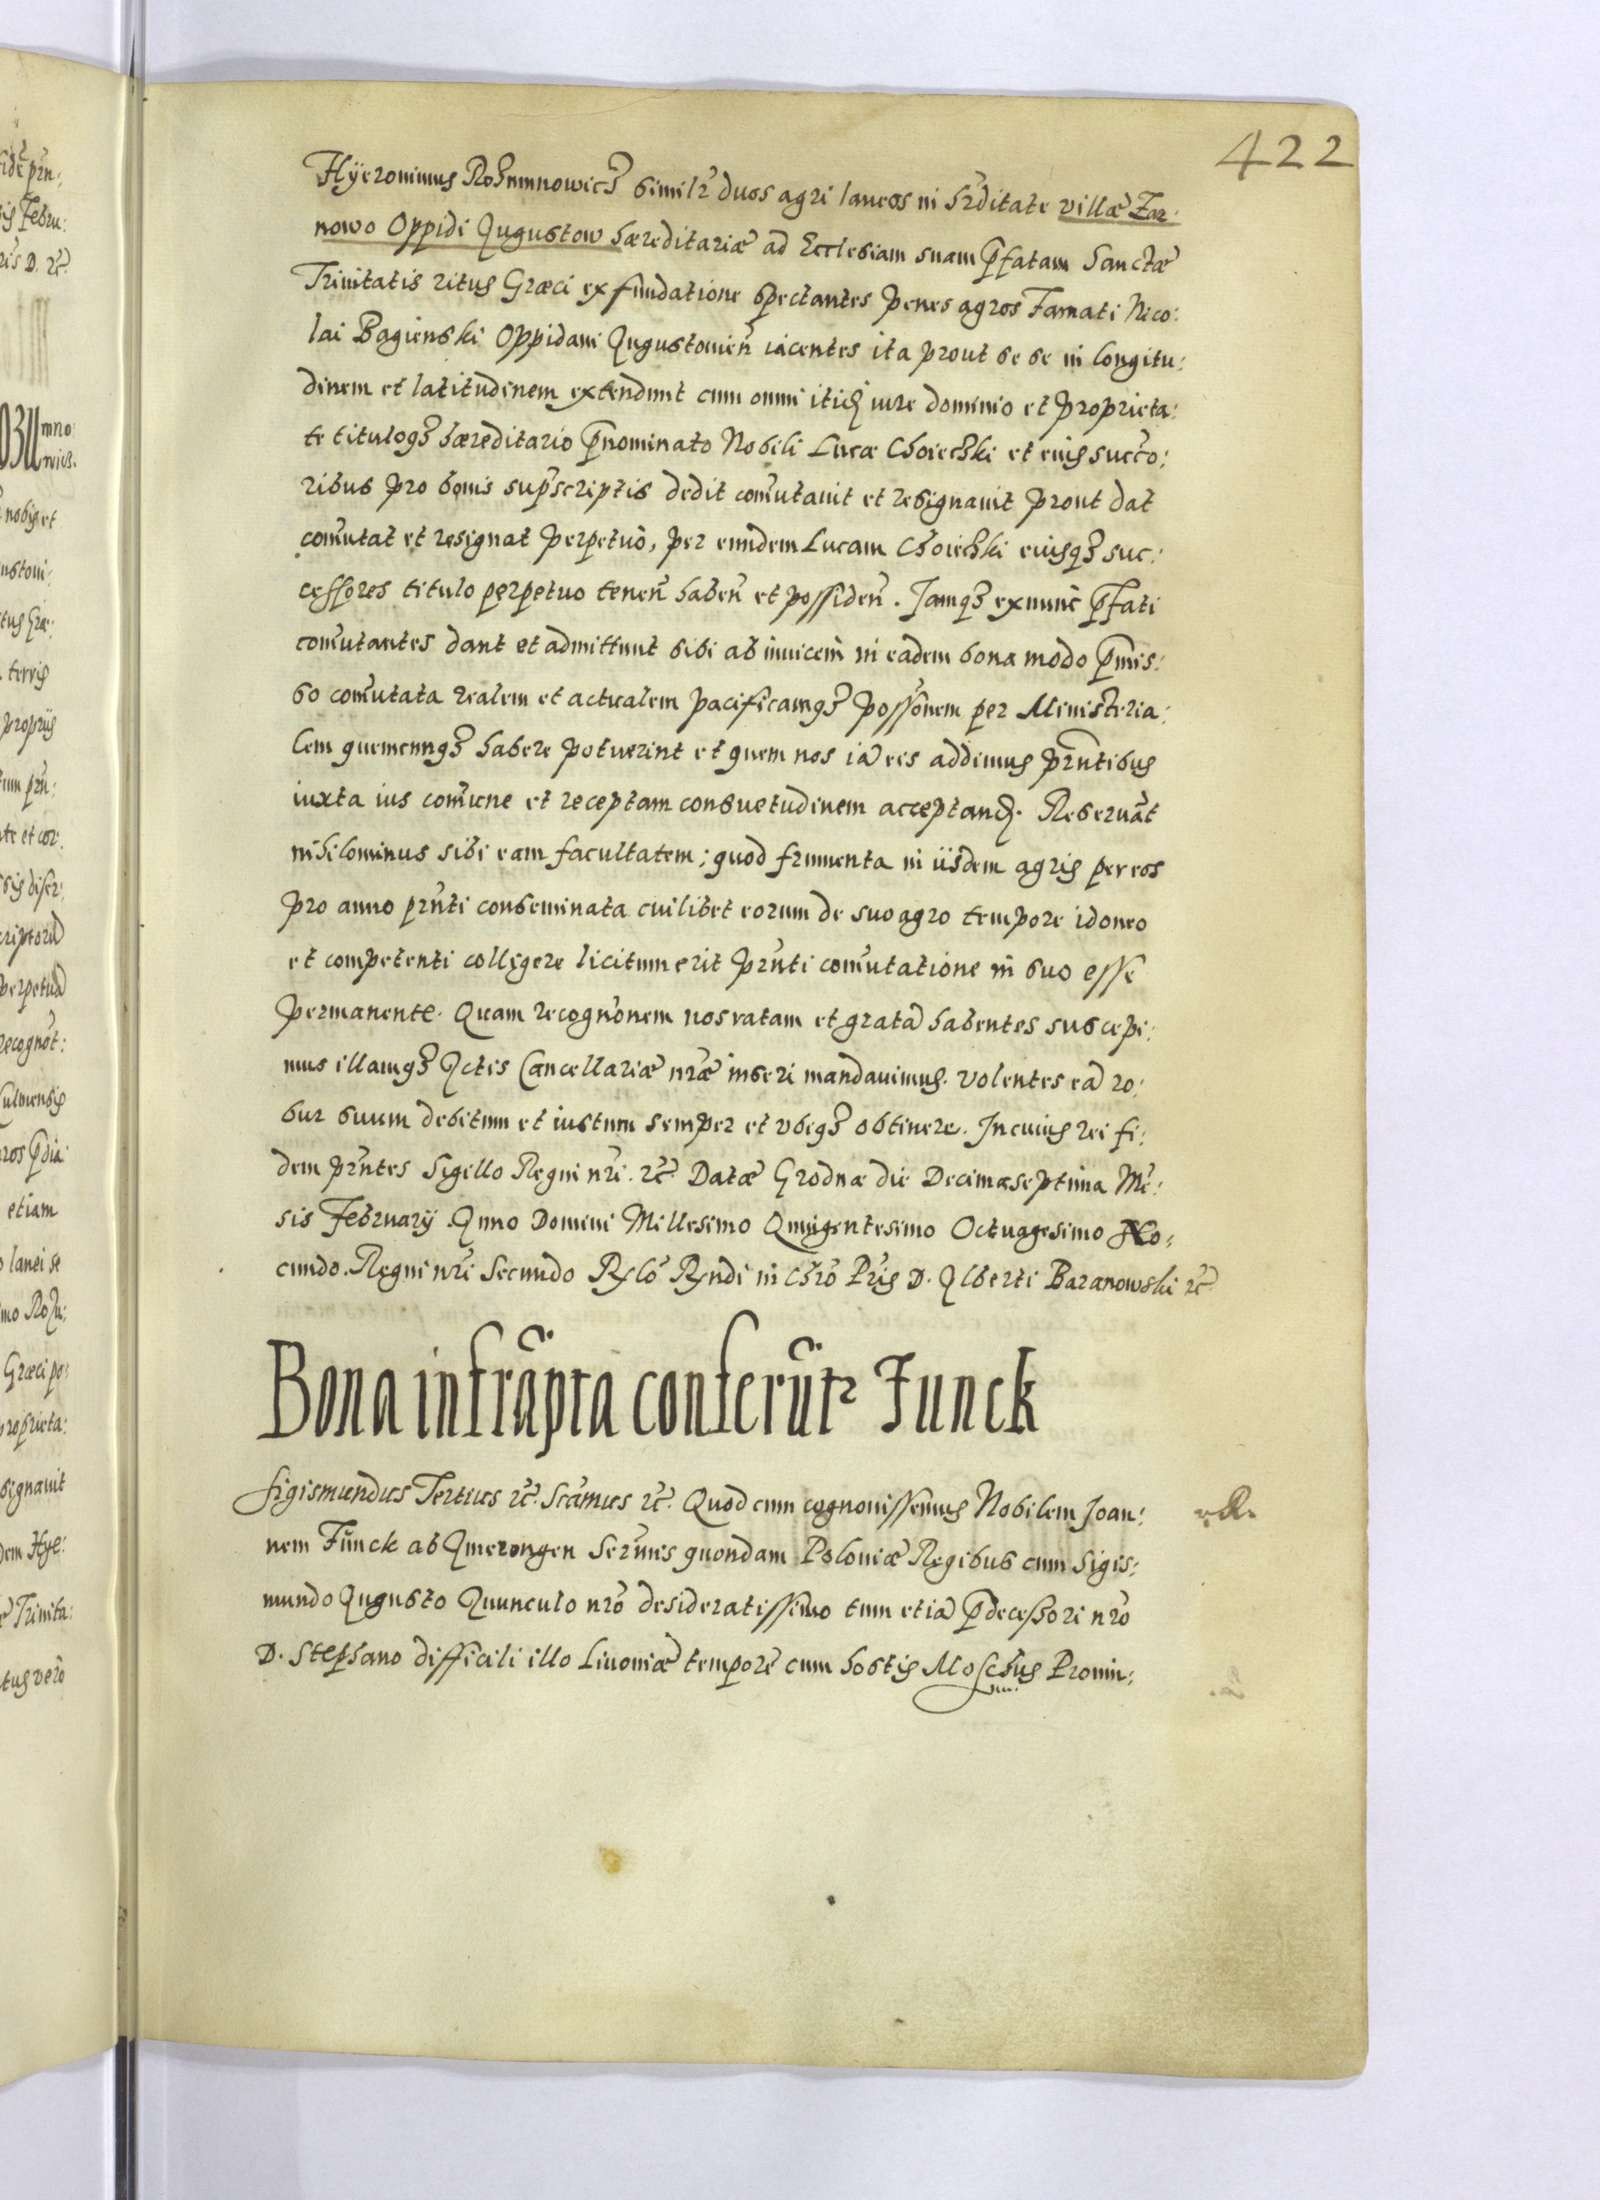 422
Hÿeronimus Rohmnowicz similr̃ duos agri laneos in hrditate villæ Zar:
nowo Oppidi Augustow hæreditariæ ad Ecclesiam suam p̃fatam Sanctæ
Trinitatis ritus Græci ex fundatione spectantes penes agros Famati Nico:
lai Bagienski Oppidani Augustouieñ iacentes ita prout se se in longitu:
dinem et latitudinem extendunt cum omni itidẽ iure dominio et proprieta:
te tituloqz hæreditario p̃nominato Nobili Lucæ Choieczki et eius succo:
ribus pro bonis sup̃scriptis dedit com̃utauit et resignauit prout dat
com̃utat et resignat perpetuò, per eundem Lucam Choieczki eiusqz suc:
cessores titulo perpetuo teneñ habeñ et possideñ. Jamqz ex nunc p̃fati
com̃utantes dant et admittunt sibi ab inuicem in eadem bona modo p̃mis:
so com̃utata realem et actualem pacificamqz posso̅nem per Ministeria:
lem quemcunqz habere potuerint et quem nos iã eis addimus pñtibus
iuxta ius com̃une et receptam consuetudinem acceptand. Reseruãt
nihilominus sibi eam facultatem; quod frumenta in iisdem agris per eos
pro anno prñti conseminata cuilibet eorum de suo agro tempore idoneo
et competenti colligere licitum erit prñti com̃utatione in suo esse
permanente. Quam recogno̅nem nos ratam et gratã habentes suscepi:
mus illamqz Actis Cancellariæ nr̃æ inseri mandauimus. volentes eã ro:
bur suum debitum et iustum semper et vbiqz obtinere. In cuius rei fi:
dem prñtes Sigillo Regni nr̃i. rc̃. Datæ Grodnæ die Decimaseptima Mẽ:
sis February Anno Domini Millesimo Quingentesimo Octuagesimo No:
cundo. Regni nr̃i Secundo Rx̃lo Rx̃ndi in Chrõ Pr̃is D. Alberti Baranowski rc̃
Bona infrãpta conferũtr Funck
Sigismundus Tertius rc̃. Scãmus rc̃. Quod cum cognouissemus Nobilem Joan:
nem Funck ab Amerongen Serm̃is quondam Poloniæ Regibus cum Sigis:
mundo Augusto Auunculo nrõ desideratissimo tum etiã p̃decessore nrõ
D. Stephano difficili illo Liuoniæ tempore cum hostis Moschus Prouin: